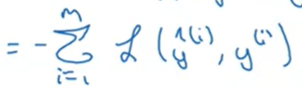 = - \sum_{i=1}^{m} \mathcal{L}(\hat{y}^{(i)}, y^{(i)})